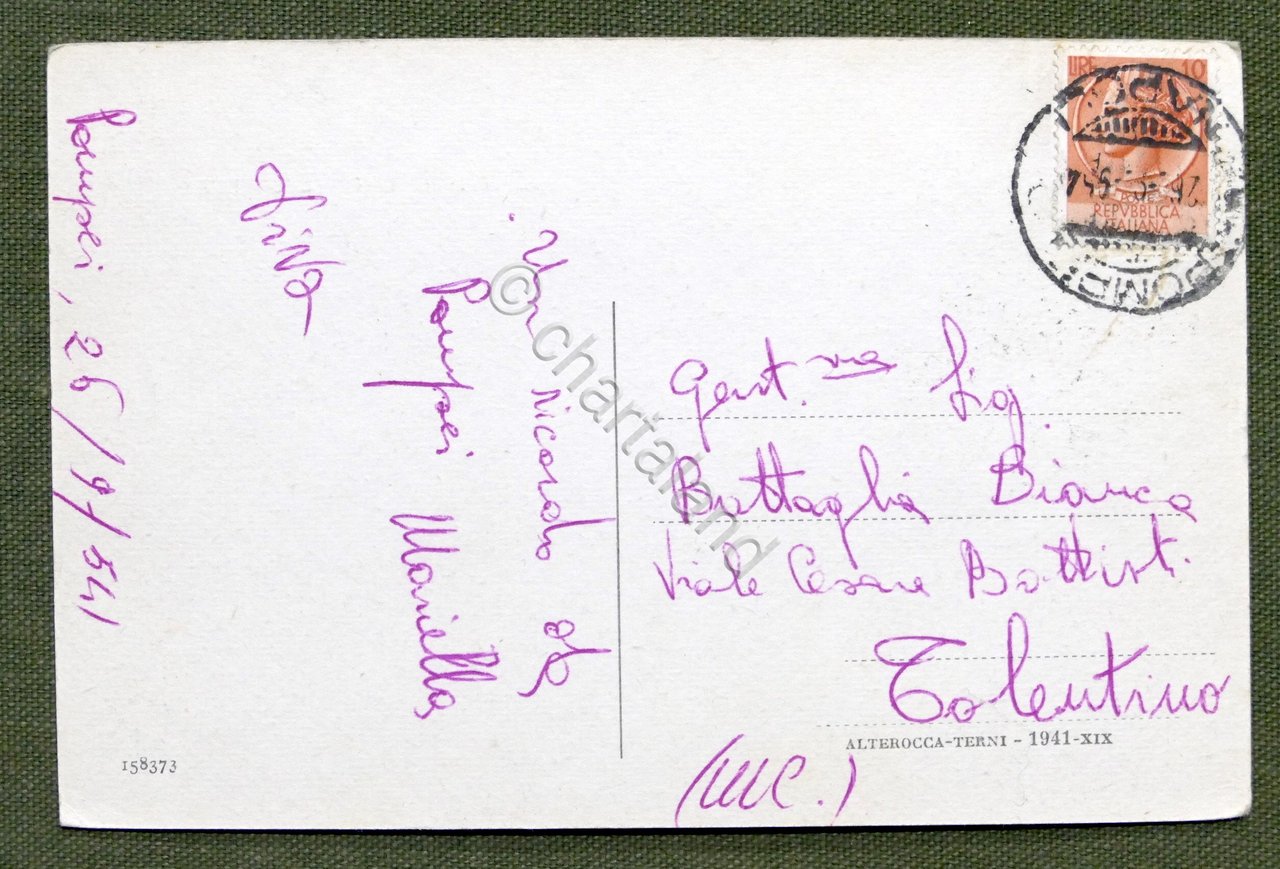 Pompei, 26/9/541
Un ricordo di
Pompei Mariella
Gent.ma Sig.
Battaglia Bianca
Viale Cesare Battisti
Tolentino
(MC.)
LIRE 10
REPVBBLICA
ITALIANA
POMPEI
ALTEROCCA-TERNI - 1941-XIX
158373
© chartaland